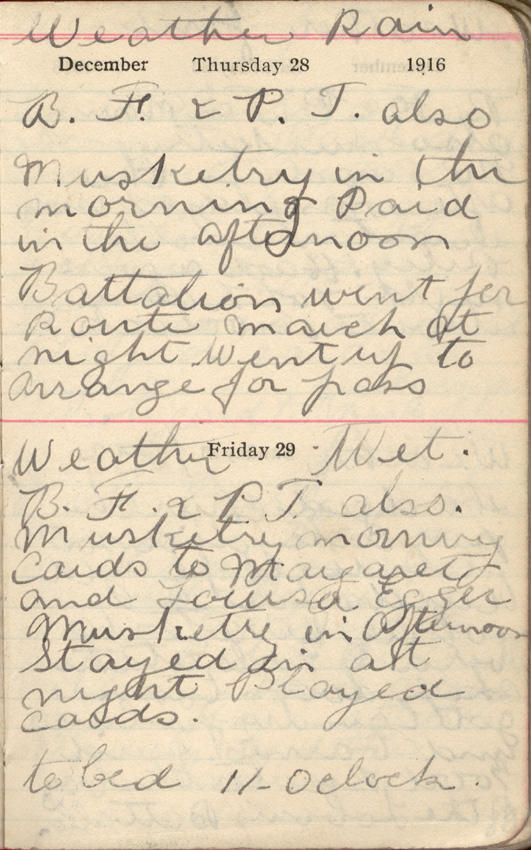 Weather Rain
December Thursday 28 1916
B. F. & P. T. also
Musketry in the
morning Paid
in the afternoon
Battalion went for
Route march at
night Went up to
arrange for pass
Weather Friday 29 Wet.
B. F. & P T. also.
Musketry morning
Cards to Margaret
and Louisa Egger
Musketre in Afternoon
Stayed in at
night Played
cards.
to bed 11- Oclock.